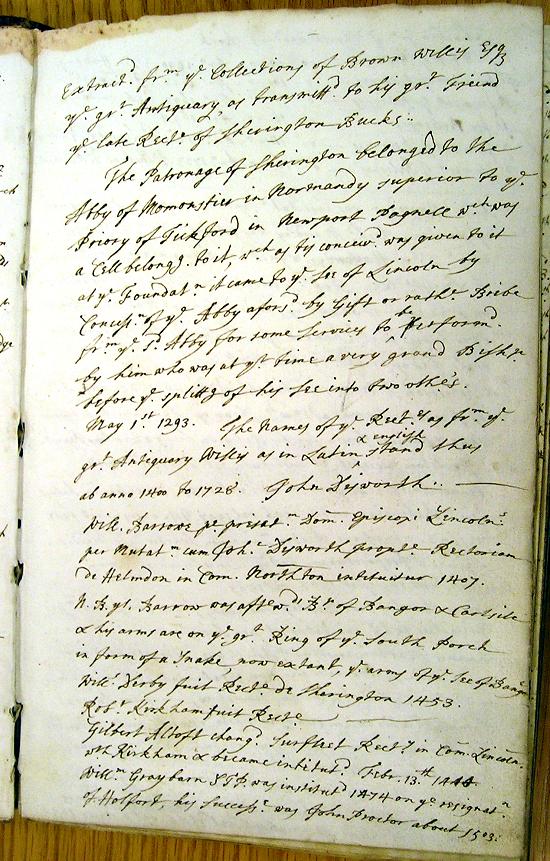 Extract.d fr.m y.e Collections of Brown Willis Esq.r
y.e gr.t Antiquary as transmitt.d to his gr.t Friend
y.e late Rect.r of Sherington Bucks.
The Patronage of Sherington belonged to the
Abby of Momonstier in Normandy superior to y.e
Priory of Tickford in Newport Pagnell w.ch was
a Cell belong.g to it w.ch as tis conceiv.d was given to it
at y.e Foundat.n it came to y.e See of Lincoln by
Concess.n of y.e Abby afors.d by Gift or rath.r Bribe
fr.m y.e s.d Abby for some services to be Perform.d
by him who was at y.t time a very grand Bishop
before y.e splitt.g of his See into two othe.s.
May 1.st 1293. The Names of y.e Rect.rs as fr.m y.e
gr.t Antiquary Willis as in Latin & English stand thus
ab anno 1400 to 1728. John Dysworth.
Will. Barrowe pe presat.n Dom. Episcopi Lincoln.s
per Mutat.n cum Joh.e Dysworth propt.r Rectoriam
de Helmdon in Com. Northton intituitur 1407.
N.B. y.t Barrow was afterw.d B.p of Bangor & Carlisle
& his arms are on y.e gr.t Ring of y.e South Porch
in form of a Snake now extant, y.e arms of y.e See of Bangor
Will. Derby fuit Rect.r de Sherington 1453.
Rob.t Kirkham fuit Rect.r
Gilbert Altoft chang.d Surfleet Rect.y in Com. Lincoln.
wth Kirkham & became intitut.d Febr. 13.th
Will.m Graybarn STP. was institut.d 1474 on y.e resignat.n
of Holford, his Success.r was John Proctor about 1503.